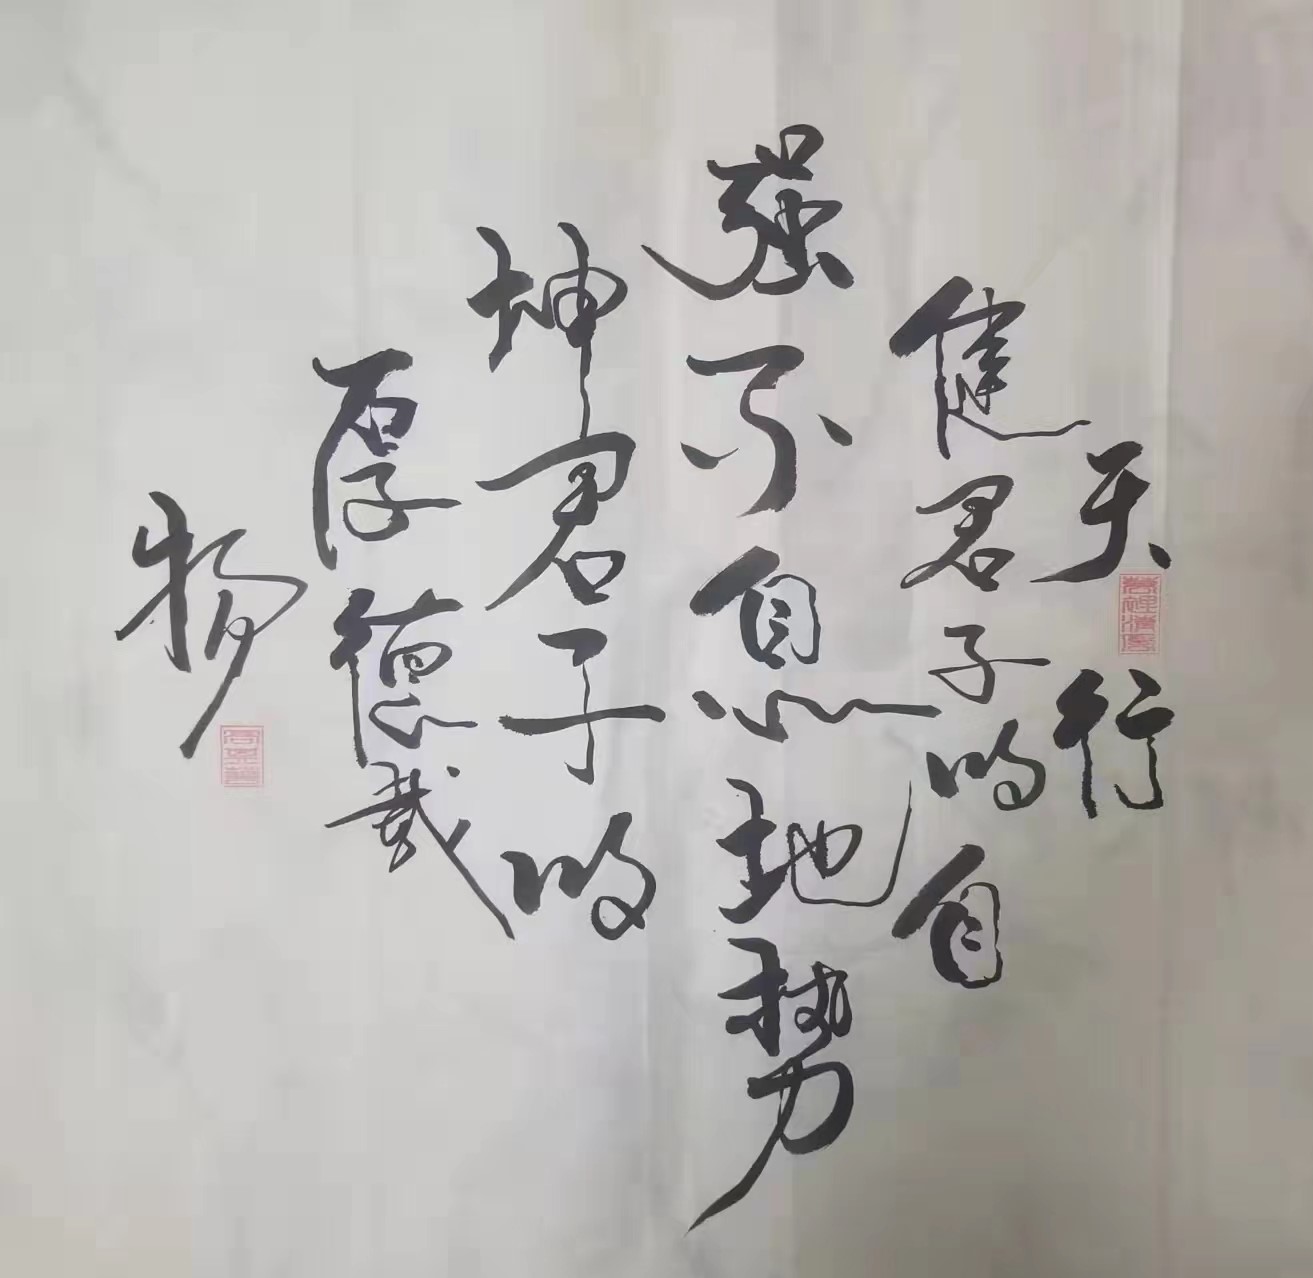 天行
健君子的自
强不息地势
坤君子的
厚德载
物